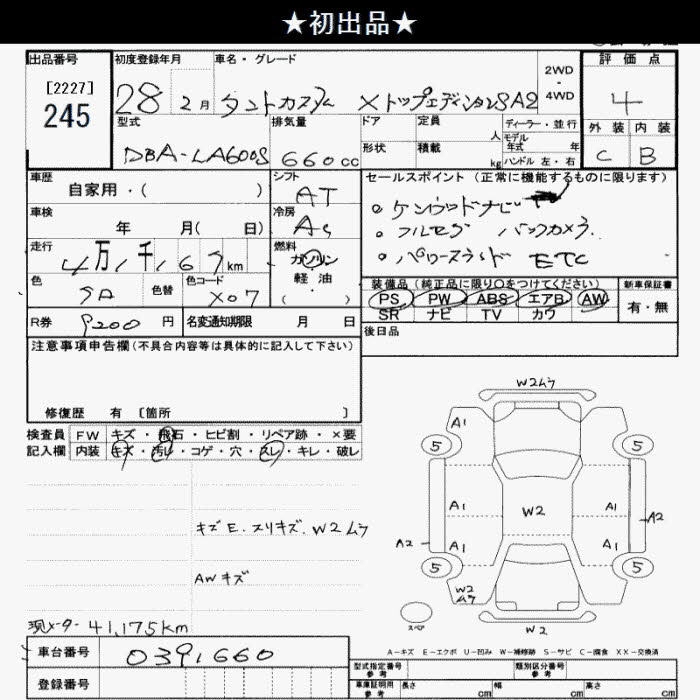 ★初出品★
出品番号 初度登録年月 車名・グレード 2WD - 4WD 評価点
[2227]
245
28 2月 タントカスタム XトップエディションSA2 4
型式 排気量 ドア 定員 人 ディーラー・並行 外装 内装
モデル年式 年
DBA-LA600S 660cc 形状 積載 kg ハンドル 左・右 C B
車歴 シフト セールスポイント (正常に機能するものに限ります)
自家用・( ) AT
。ケンウッドナビ
車検 冷房
年 月( 日) AC
。フルセグ バックカメラ
走行 燃料
4万1千167km ガソリン
。パワースライド ETC
色 色替 色コード 軽油
X07 ( )
装備品 (純正品に限り○をつけてください) 新車保証書
PS PW ABS エアB AW 有・無
SR ナビ TV カワ
R券 9200円 名変通知期限 月 日
後日品
注意事項申告欄 (不具合内容等は具体的に記入して下さい)
修復歴 有 〔箇所 〕
検査員 FW キズ・飛石・ヒビ割・リペア跡・×要
記入欄 内装 キズ・汚れ・コゲ・穴・スレ・キレ・破レ
キズE.スリキズ.W2ムラ
AWキズ
現メーター 41,175km
W2ムラ
A1
5 5
A1 W2 A1
A2 A1 A1 A2
5 5
W2ムラ
スペア W2
A-キズ E-エクボ U-凹み W-補修跡 S-サビ C-腐食 XX-交換済
車台番号 0391660
型式指定番号 参考 類別区分番号 参考
登録番号
車庫証明用 参考 長さ cm 幅 cm 高さ cm